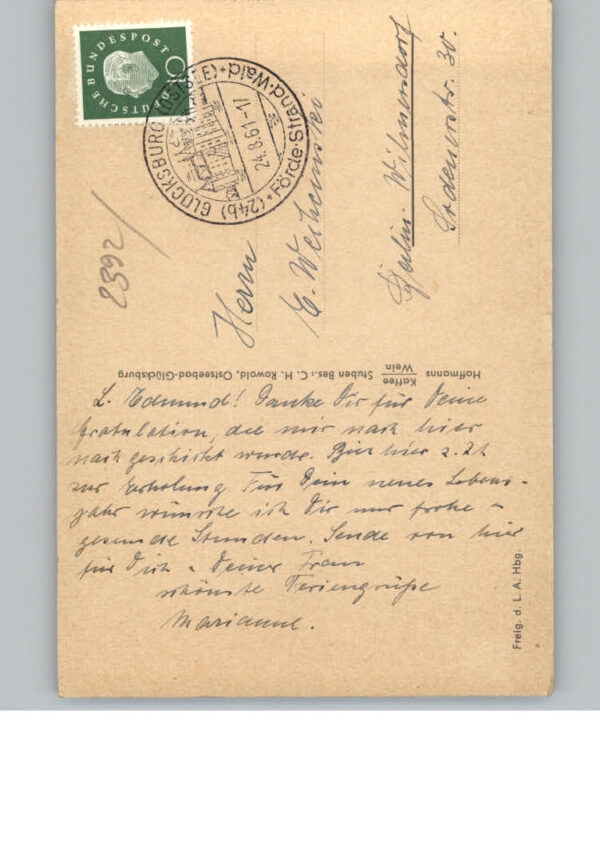 DEUTSCHE BUNDESPOST
(24b) GLÜCKSBURG (OSTSEE) + Förde-Strand-Wald +
24.8.61-17
2392/
Herrn
E.
Berlin-Wilmersdorf
str. 30.
Hoffmanns Kaffee Wein Stuben Bes.: C. H. Rowold, Ostseebad-Glücksburg
L. Edmund! Danke Dir für Deine
Gratulation, die mir nach hier
nachgeschickt wurde. Bin hier z. Zt
zur Erholung. Für Dein neues Lebens-
jahr wünsche ich Dir nur frohe -
gesunde Stunden. Sende von hier
für Dich u. Deine Frau
schönste Feriengrüße
Marianne.
Freig. d. L. A. Hbg.